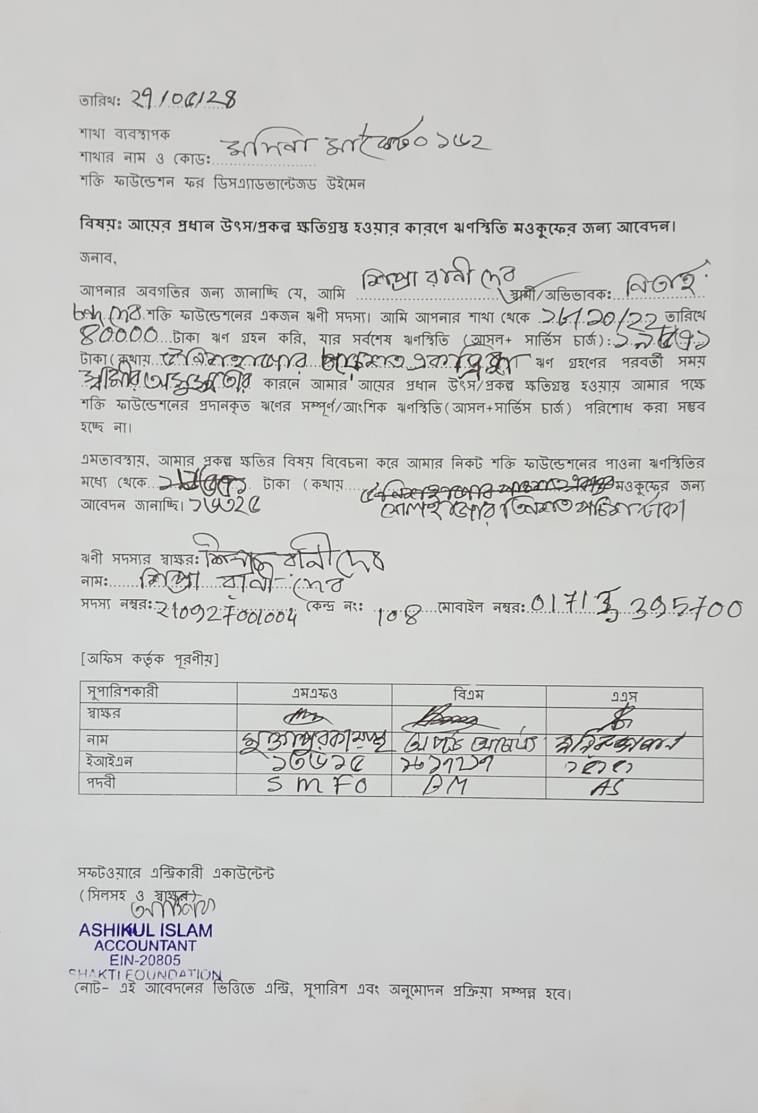 তারিখ: 29/05/24
শাখা ব্যবস্থাপক
শাখার নাম ও কোড: মদিনা মার্কেট ০১৫২
শক্তি ফাউন্ডেশন ফর ডিসএ্যাডভান্টেজড উইমেন
বিষয়: আয়ের প্রধান উৎস/প্রকল্প ক্ষতিগ্রস্ত হওয়ার কারণে ঋণস্থিতি মওকুফের জন্য আবেদন।
জনাব,
আপনার অবগতির জন্য জানাচ্ছি যে, আমি শিপ্রা রানী দেব স্বামী/অভিভাবক: নিতাই
দেব শক্তি ফাউন্ডেশনের একজন ঋণী সদস্য। আমি আপনার শাখা থেকে তারিখে
80000 টাকা ঋণ গ্রহন করি, যার সর্বশেষ ঋণস্থিতি (আসল+ সার্ভিস চার্জ):
টাকা (কথায় ঋণ গ্রহণের পরবর্তী সময়
স্বামীর অসুস্থতার কারনে আমার আয়ের প্রধান উৎস/প্রকল্প ক্ষতিগ্রস্ত হওয়ায় আমার পক্ষে
শক্তি ফাউন্ডেশনের প্রদানকৃত ঋণের সম্পূর্ণ/আংশিক ঋণস্থিতি(আসল+সার্ভিস চার্জ) পরিশোধ করা সম্ভব
হচ্ছে না।
এমতাবস্থায়, আমার প্রকল্প ক্ষতির বিষয় বিবেচনা করে আমার নিকট শক্তি ফাউন্ডেশনের পাওনা ঋণস্থিতির
মধ্যে থেকে টাকা (কথায় মওকুফের জন্য
আবেদন জানাচ্ছি। ১৬৩২৫ ষোলই হাজার তিনশত পচিশ টাকা।
ঋনী সদস্যর স্বাক্ষর: শিপ্রা রানী দেব
নাম: শিপ্রা রানী দেব
সদস্য নম্বর: 210927001004 কেন্দ্র নং: 108 মোবাইল নম্বর: 01713 395700
[অফিস কর্তৃক পূরণীয়]
সুপারিশকারী এমএফও বিএম এএস
স্বাক্ষর
নাম
ইআইএন ১৩৬২৫
পদবী SMFO BM AS
সফটওয়ারে এন্ট্রিকারী একাউন্টেন্ট
(সিলসহ ও স্বাক্ষর)
ASHIKUL ISLAM
ACCOUNTANT
EIN-20805
SHAKTI FOUNDATION
নোট- এই আবেদনের ভিত্তিতে এন্ট্রি, সুপারিশ এবং অনুমোদন প্রক্রিয়া সম্পন্ন হবে।